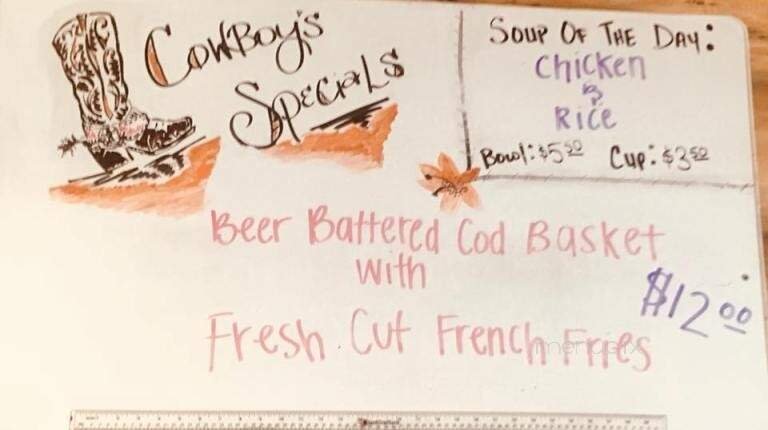 Cowboy's
Specials
Soup Of The Day:
Chicken
&
Rice
Bowl: $5.50 Cup: $3.50
Beer Battered Cod Basket
with
$12.00
Fresh Cut French Fries